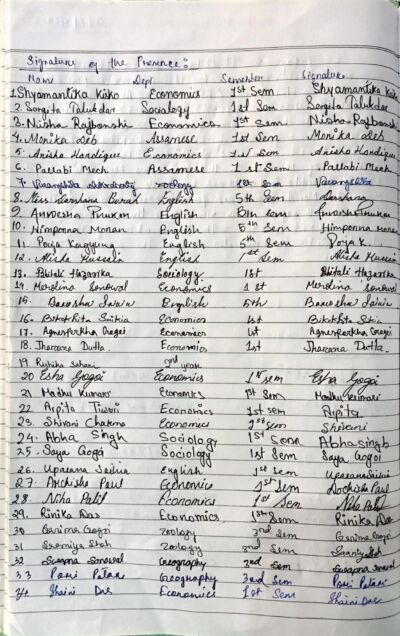 Signature of the Presence :
Name Dept Semester Signature
1. Shyamantika Kako Economics 1st Sem Shyamantika Kako
2. Sargita Talukdar Socialogy 1st Sem Sargita Talukdar
3. Nisha Rajbonshi Economics 1st Sem Nisha Rajbonshi
4. Monika Deb Assamese 1st Sem Monika Deb
5. Anisha Handique Economics 1st Sem Anisha Handique
6. Pallabi Mech Assamese 1st Sem Pallabi Mech
7. Zoology 1st Sem
8. Miss Darshana Borah English 5th Sem Darshana
9. Anwesha Phukon English 5th Sem Anwesha Phukon
10. Himponna Moran English 5th Sem Himponna Moran
11. Poyak English 5th Sem Poyak
12. Alisha Hussain English 1st Sem Alisha Hussain
13. Bhitali Hazarika Sociology 1st Bhitali Hazarika
14. Merolina Sonowal Economics 1st Merolina Sonowal
15. Barasha English 5th Barasha
16. Saikia Economics 1st
17. Gogoi Economics 1st Gogoi
18. Jharana Dutta Economics 1st Jharana Dutta
19 3rd year
20 Esha Gogoi Economics 1st sem Esha Gogoi
21 Madhu Kumari Economics 1st Sem Madhu Kumari
22 Arpita Tiwari Economics 1st sem Arpita
23. Shivani Economics 1st sem Shivani
24. Abha Singh Sociology 1st Sem Abha singh
25. Saya Gogoi Sociology 1st Sem Saya Gogoi
26. Upasana Saikia English 1st Sem Upasana Saikia
27. Archisha Paul Economics 1st Sem Archisha Paul
28. Niha Patil Economics 1st Sem Niha Patil
29. Rinika Das Economics 1st Sem Rinika Das
30 Garima Gogoi Zoology 3nd Sem Garima Gogoi
31 Shah Zoology 3nd Sem Shah
32 Swapna Sonowal Geography 3nd Sem Swapna Sonowal
33 Pori Patar Geography 3nd Sem Pori Patari
34. Shaini Das Economics 1st Sem Shaini Das